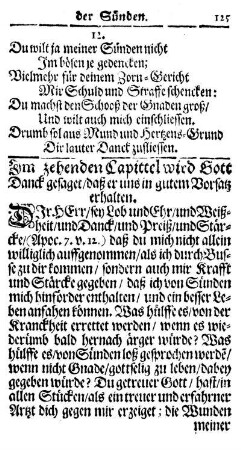 der Sünden. 125
12.
Du wilt ja meiner Sünden nicht
Im bösen je gedencken;
Vielmehr für deinem Zorn-Gericht
Mir Schuld und Straffe schencken:
Du machst den Schooß der Gnaden groß/
Und wilt auch mich einschliessen.
Drumb sol aus Mund und Hertzens-Grund
Dir lauter Danck zufliessen.
Im zehenden Capittel wird Gott
Danck gesaget/daß er uns in gutem Vorsatz
erhalten.
DIr. HErr/sey Lob und Ehr/und Weiß-
heit/und Danck/und Preiß/und Stär-
cke/(Apoc. 7. v. 12.) daß du mich nicht allein
williglich auffgenommen/als ich durch Bus-
se zu dir kommen/ sondern auch mir Krafft
und Stärcke gegeben/ daß ich von Sünden
mich hinförder enthalten/ und ein besser Le-
ben anfahen können. Was hülffe es/von der
Kranckheit errettet werden/ wenn es wie-
derümb bald hernach ärger würde? Was
hülffe es/von Sünden loß gesprochen werdē/
wenn nicht Gnade/gottselig zu leben/dabey
gegeben würde? Du getreuer Gott/ hast/in
allen Stücken/als ein treuer und erfahrner
Artzt dich gegen mir erzeiget; die Wunden
meiner